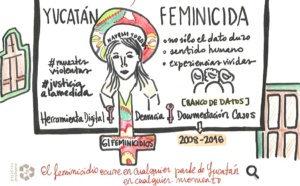 YUCATÁN FEMINICIDA
#muertes violentas
#justicia a la medida
• no sólo el dato duro
• sentido humano
• experiencias vividas
[BANCO DE DATOS]
Herramienta Digital Denuncia Documentación Casos
GIFEMINICIDIOS 2008-2016
El feminicidio ocurre en cualquier parte de Yucatán
en cualquier momento